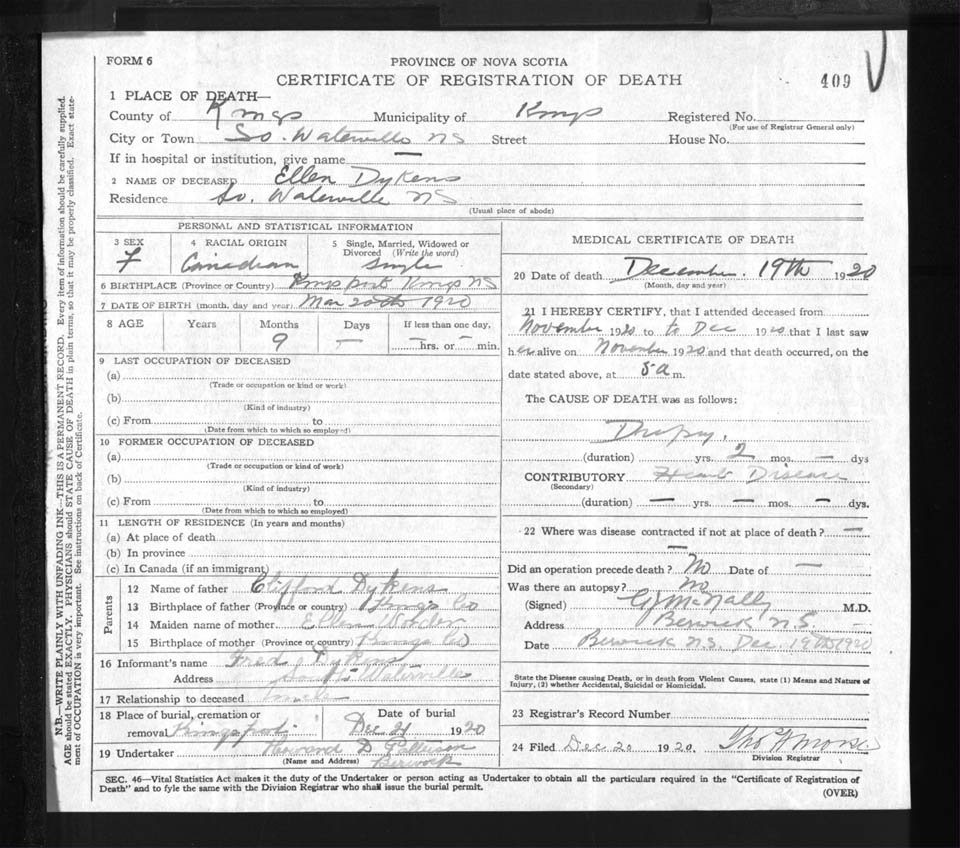 FORM 6
PROVINCE OF NOVA SCOTIA
CERTIFICATE OF REGISTRATION OF DEATH
409
1 PLACE OF DEATH—
County of Kings Municipality of Kings Registered No.
(For use of Registrar General only)
City or Town So. Waterville NS Street House No.
If in hospital or institution, give name —
2 NAME OF DECEASED Ellen Dykens
Residence So. Waterville NS
(Usual place of abode)
PERSONAL AND STATISTICAL INFORMATION
3 SEX
F
4 RACIAL ORIGIN
Canadian
5 Single, Married, Widowed or Divorced (Write the word)
Single
6 BIRTHPLACE (Province or Country) Kingsport Kings NS
7 DATE OF BIRTH (month, day and year) Mar 20th 1920
8 AGE Years Months Days If less than one day,
9 — — hrs. or — min.
9 LAST OCCUPATION OF DECEASED
(a)
(Trade or occupation or kind or work)
(b)
(Kind of industry)
(c) From to
(Date from which to which so employed)
10 FORMER OCCUPATION OF DECEASED
(a)
(Trade or occupation or kind of work)
(b)
(Kind of industry)
(c) From to
(Date from which to which so employed)
11 LENGTH OF RESIDENCE (In years and months)
(a) At place of death
(b) In province
(c) In Canada (if an immigrant)
Parents
12 Name of father Clifford Dykens
13 Birthplace of father (Province or country) Kings Co
14 Maiden name of mother Ellen
15 Birthplace of mother (Province or country) Kings Co
16 Informant's name Fred Dykens
Address South Waterville
17 Relationship to deceased Uncle
18 Place of burial, cremation or removal Kingsport
Date of burial
Dec 21 1920
19 Undertaker D
(Name and Address) Berwick
MEDICAL CERTIFICATE OF DEATH
20 Date of death December. 19th 1920
(Month, day and year)
21 I HEREBY CERTIFY, that I attended deceased from
November 1920 to to Dec 1920 that I last saw
her alive on November 1920 and that death occurred, on the
date stated above, at 5 a m.
The CAUSE OF DEATH was as follows:
Dropsy,
(duration) yrs. 2 mos. — dys
CONTRIBUTORY Heart Disease
(Secondary)
(duration) — yrs. — mos. — dys.
22 Where was disease contracted if not at place of death? —
—
Did an operation precede death? No Date of —
Was there an autopsy? No
(Signed) McNally M.D.
Address Berwick N.S. —
Date Berwick N.S. Dec. 19th 1920
State the Disease causing Death, or in death from Violent Causes, state (1) Means and Nature of
Injury, (2) whether Accidental, Suicidal or Homicidal.
23 Registrar's Record Number
24 Filed Dec 20 1920. Thos H Morse
Division Registrar
SEC. 46—Vital Statistics Act makes it the duty of the Undertaker or person acting as Undertaker to obtain all the particulars required in the "Certificate of Registration of
Death" and to fyle the same with the Division Registrar who shall issue the burial permit.
(OVER)
N.B.—WRITE PLAINLY WITH UNFADING INK—THIS IS A PERMANENT RECORD. Every item of information should be carefully supplied.
AGE should be stated EXACTLY. PHYSICIANS should STATE CAUSE OF DEATH in plain terms, so that it may be properly classified. Exact state-
ment of OCCUPATION is very important. See instructions on back of Certificate.